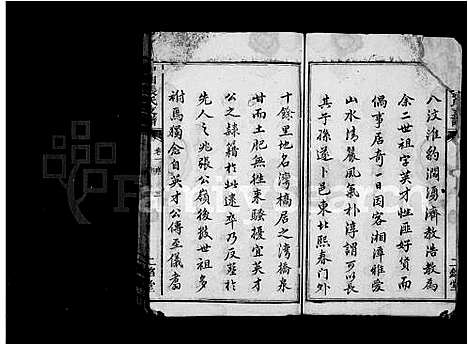 八汶淮豹澗湯濟教浩教為
余二世祖字英才性匪好貨而
偶事居奇一因客湘潭雅愛
山水清麗風氣朴淳謂可以長
其子孫遂卜邑東北熙春門外
十餘里地名灣橋居之灣橋泉
甘而土肥無徃來騷擾宜英才
公之隸籍於此逮卒乃反塟於
先人之兆張公嶺後數世祖多
祔焉獨念自英才公傳至儀
卷一
二銘堂
FamilySearch